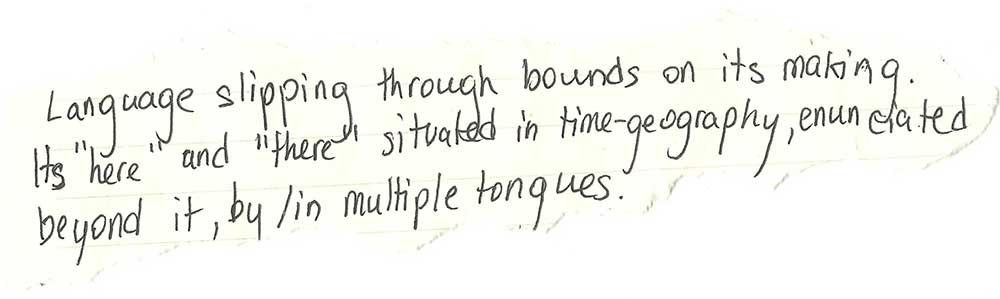 Language slipping through bounds on its making.
Its "here" and "there" situated in time-geography, enunciated
beyond it, by/in multiple tongues.